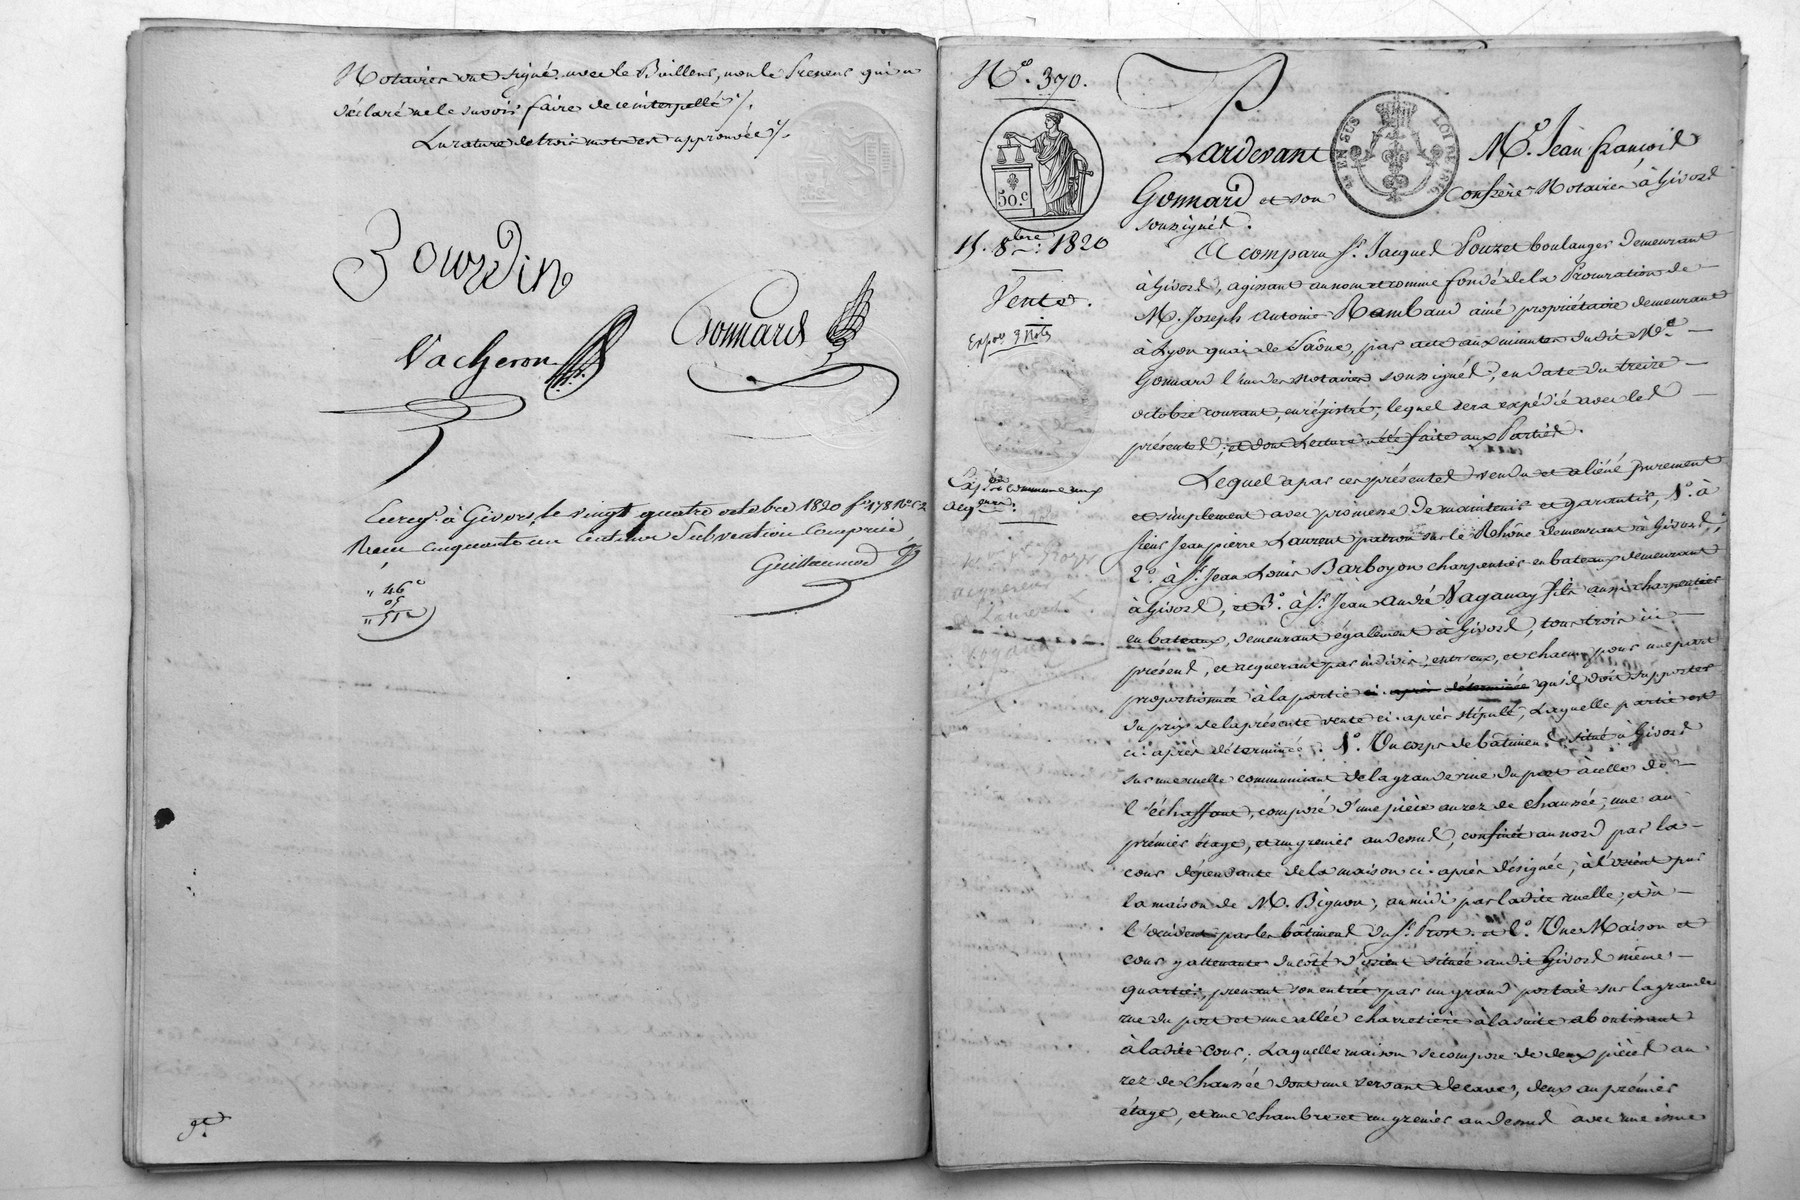 Notaires ont signé avec le Buillens, non le Preneur qui a
déclaré ne le savoir faire de ce interpellé ./.
La rature de trois mots est approuvée ./.
Bourdin
Vacheron
Gonnard
Enreg. à Givors, le vingt quatre octobre 1820 f° 178 R° C 2
Reçu cinquante un centimes Subvention comprise
Guillaumod
" 46c
05
" 51c
N° 370.
50.c
15. 8bre 1820
Vente.
Pardevant Me. Jean françois
Gonnard et son Confrère Notaires à Givors
soussignés.
A comparu Sr. Jacques Pouzet boulanger demeurant
à Givors, agissant au nom et comme fondé de la Procuration de
M. Joseph Antoine Rambaud ainé propriétaire demeurant
à Lyon quai de Saône, par acte aux minutes dudit Me.
Gonnard l'un des notaires soussignés, en date du treize
octobre courant, enrégistré, lequel sera expédié avec les
présentes. et dont Lecture a été faite aux Parties.
Expée. commune aux
acqéreurs.
Lequel a par ces présentes vendu et aliéné purement
et simplement avec promesse de maintenir et garantir, 1°. à
Sieur Jean pierre Laurent patron sur le Rhône demeurant à Givors,
2°. à Sr. Jean Louis Barboyon charpentier en bateaux demeurant
à Givors, et 3°. à Sr. Jean André Vaganay fils aussi charpentier
en bateaux, demeurant également à Givors, tous trois ici
présents, et acquerant par indivis entr'eux, et chacun pour une part
proportionnée à la partie ci après déterminée qu'il doit supporter
du prix de la présente vente ci-après stipulé, Laquelle partie est
ci-après déterminée : 1°. Un corps de bâtiment situé à Givors
sur une ruelle communicant de la grande rue du port à celle de
l'échaffaut, composé d'une pièce au rez de chaussée, une au
prémier étage, et un grenier au dessus, confinée au nord par la
cour dépendante de la maison ci-après désignée, à l'orient par
la maison de M. Bignon, au midi par ladite ruelle, et à
l'occident par les bâtiments du Sr. Prost. et 2°. Une Maison et
cour y attenante du côté d'orient située audit Givors même
quartier, prenant son entrée par un grand portail sur la grande
rue du port et une allée charretière à la suite aboutissant
à ladite cour, Laquelle maison se compose de deux pièces au
rez de chaussée dont une servant de cave, deux au prémier
étage, et une chambre et un grenier au dessus avec une issue